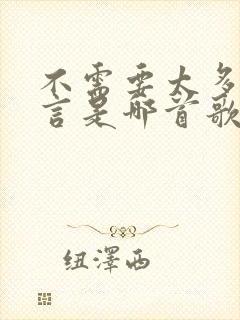 不需要太多
言是哪首歌
纽澤西